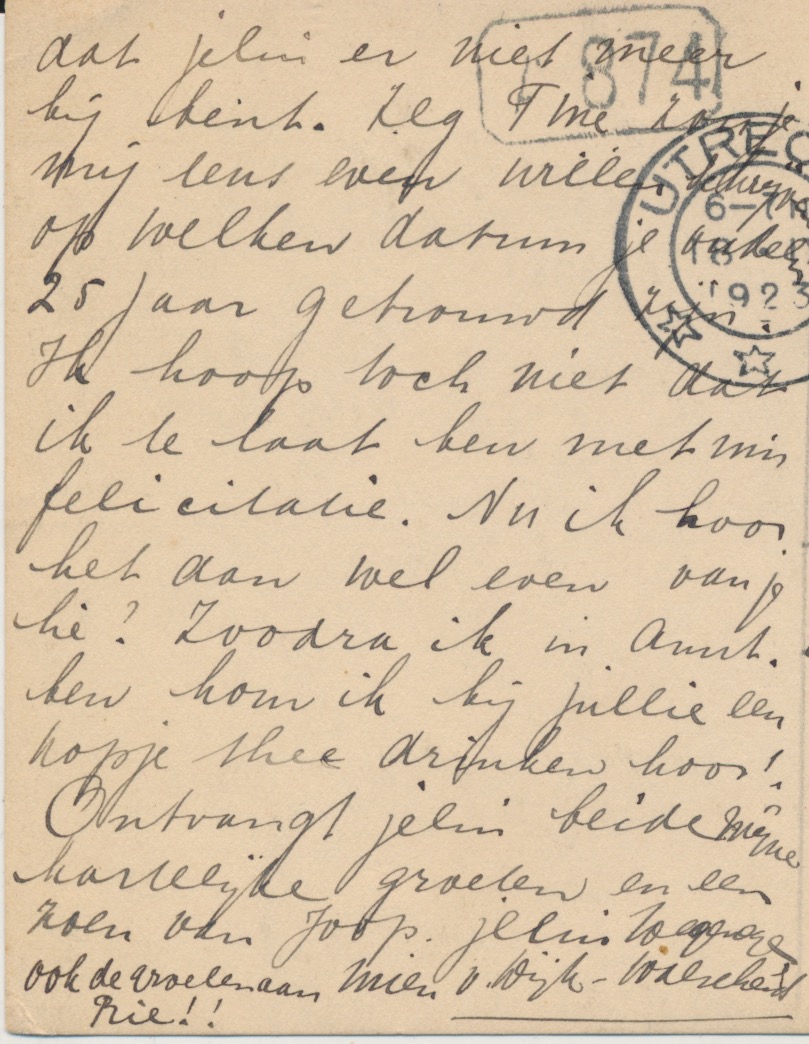 dat jelui er niet meer
bij bent. Zeg Tine zou je
mij eens even willen schrijven
op welken datum je ouders
25 jaar getrouwd zijn.
Ik hoop toch niet dat
ik te laat ben met mijn
felicitatie. Nu ik hoor
het dan wel even van je
hè? Zoodra ik in Amst.
ben kom ik bij jullie een
kopje thee drinken hoor!
Ontvangt jelui beide mijne
hartelijke groeten en een
zoen van Joop. jelui
ook de groeten aan Mien v. Wijk-
Rie!!
874
UTREC
6-7N
18
1923